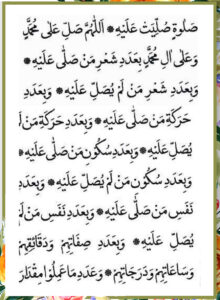 صَلٰوةٍ صُلِّيَتْ عَلَيْهِ ۞ اَللّٰهُمَّ صَلِّ عَلٰى مُحَمَّدٍ
وَعَلٰى اٰلِ مُحَمَّدٍ بِعَدَدِ شَعْرِ مَنْ صَلّٰى عَلَيْهِ ۞
وَبِعَدَدِ شَعْرِ مَنْ لَمْ يُصَلِّ عَلَيْهِ ۞ وَبِعَدَدِ
حَرَكَةِ مَنْ صَلّٰى عَلَيْهِ ۞ وَبِعَدَدِ حَرَكَةِ مَنْ لَمْ
يُصَلِّ عَلَيْهِ ۞ وَبِعَدَدِ سُكُوْنِ مَنْ صَلّٰى عَلَيْهِ ۞
وَبِعَدَدِ سُكُوْنِ مَنْ لَمْ يُصَلِّ عَلَيْهِ ۞ وَبِعَدَدِ
نَفَسِ مَنْ صَلّٰى عَلَيْهِ ۞ وَبِعَدَدِ نَفَسِ مَنْ لَمْ
يُصَلِّ عَلَيْهِ ۞ وَبِعَدَدِ صِفَاتِهِمْ وَدَقَائِقِهِمْ
وَسَاعَاتِهِمْ وَدَرَجَاتِهِمْ ۞ وَعَدَدِ مَاعَمِلُوْا مِقْدَارَ